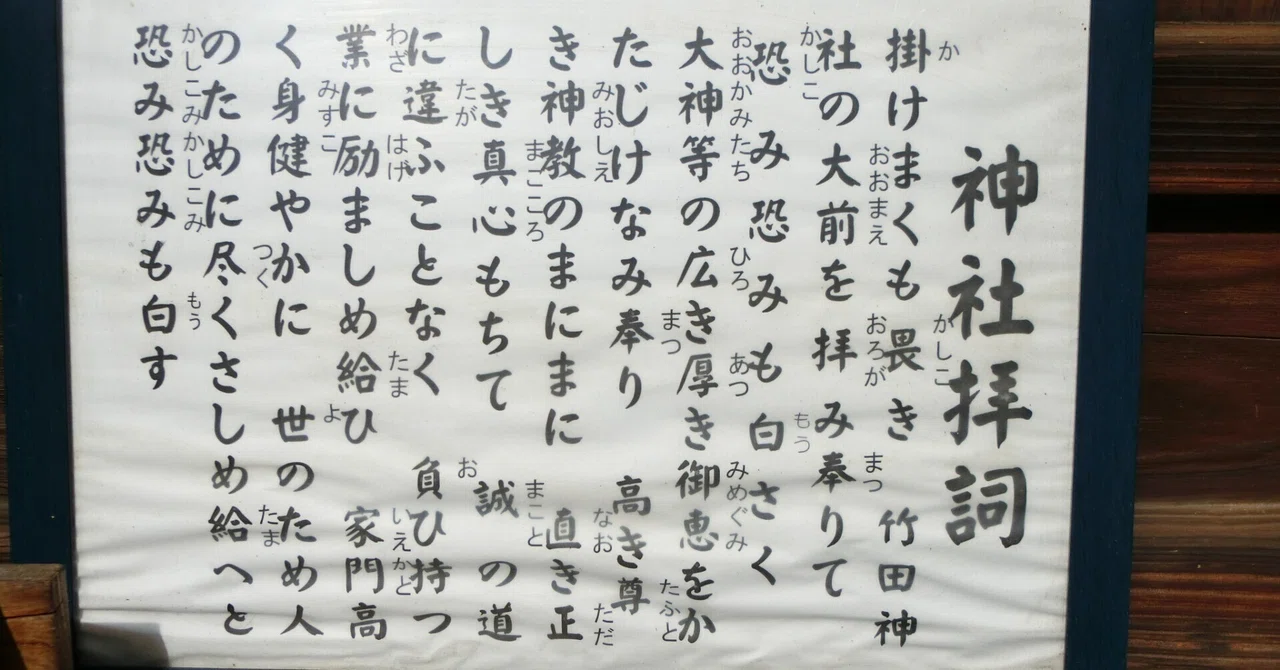 神社拝詞
掛けまくも畏き 竹田神
社の大前を 拝み奉りて
恐み恐みも白さく
大神等の広き厚き御恵をか
たじけなみ奉り 高き尊
き神教のまにまに 直き正
しき真心もちて 誠の道
に違ふことなく 負ひ持つ
業に励ましめ給ひ 家門高
く身健やかに 世のため人
のために尽くさしめ給へと
恐み恐みも白す